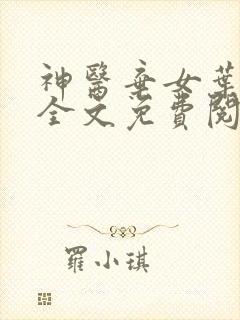 神醫棄女葉
全文免費閱
羅小琪